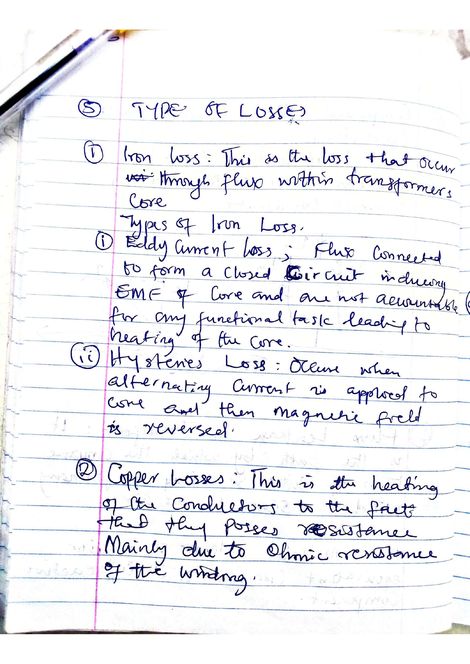 ⑤ TYPE OF LOSSES
① Iron loss: This is the loss that occur
through flux within transformers
Core
Types of Iron Loss.
(i) Eddy Current loss; Flux Connected
to form a closed Circuit inducing
EMF of Core and are not accountable
for any functional task leading to
heating of the core.
(ii) Hysteries Loss: Occurs when
alternating current is applied to
core and then magnetic field
is reversed.
② Copper Losses: This is the heating
of the conductors to the fact
that they posses resistance
Mainly due to Ohmic resistance
of the winding.